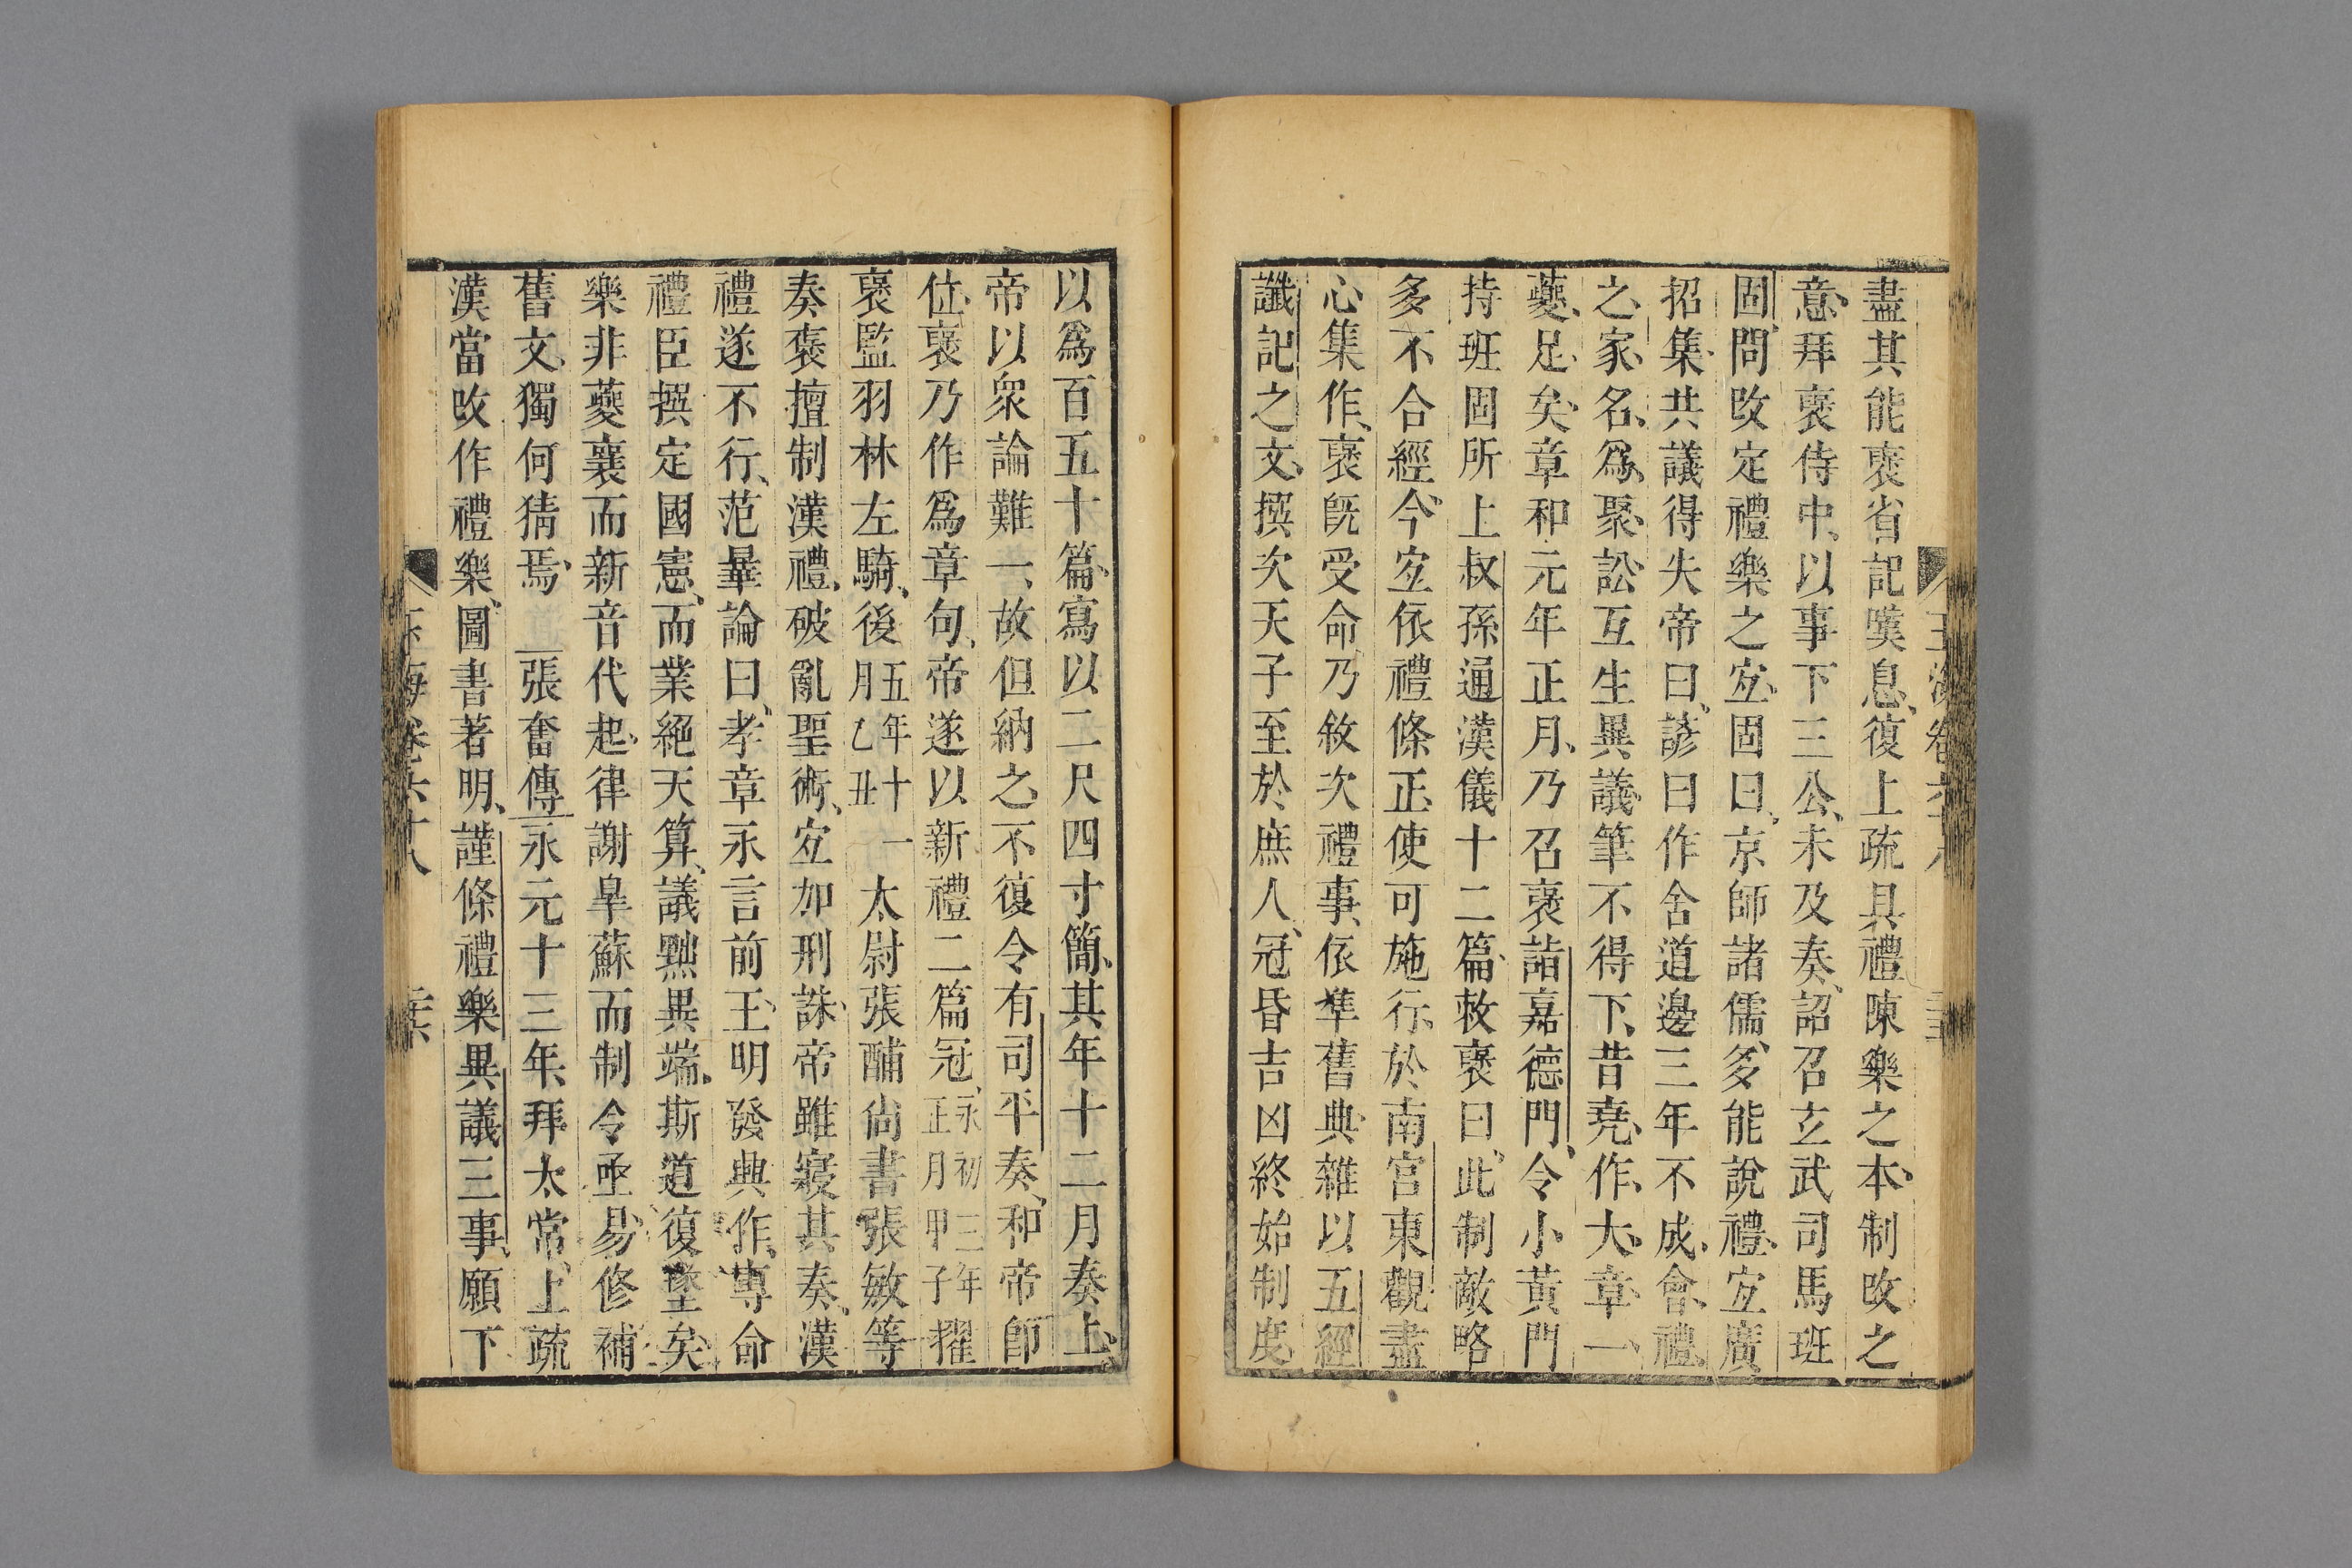 盡其能褒省記嘆息、復上疏具禮陳樂之本、制改之
意、拜褒侍中、以事下三公、未及奏、詔召玄武司馬班
固、問改定禮樂之宐、固曰、京師諸儒、多能說禮、宐廣
招集、共議得失、帝曰、諺曰作舍道邊三年不成、會、禮、
之、家、名、爲、聚、訟、互生異議、筆不得下、昔堯、作、大、章、一、
夔、足、矣、章和元年正月、乃召褒詣嘉德門、令小黃門
持班固所上叔孫通漢儀十二篇、敕褒曰、此制散略
多不合經、今宐依禮條正、使可施行、於南宮東觀盡
心集作、褒旣受命乃敘次禮事、依準舊典、雜以五經
讖記之文、撰次天子至於庶人、冠昏吉凶終始制度
以爲百五十篇、寫以二尺四寸簡、其年十二月奏上、
帝以衆論難一、故但納之、不復令有司平奏、和帝卽
位、褒乃作爲章句、帝遂以新禮二篇冠、永初三年正月甲子擢
褒監羽林左騎、後五年十一月乙丑太尉張酺尚書張敏等
奏褒擅制漢禮、破亂聖術、宐加刑誅、帝雖寢其奏、漢
禮遂不行、范曅論曰、孝章永言前王、明發興作、專命
禮臣撰定國憲、而業絕天算、議黜異端、斯道復墜矣、
樂非夔襄而新音代起、律謝皐蘇而制令亟易、修補
舊文、獨何猜焉、張奮傳永元十三年、拜太常、上疏
漢當改作禮樂、圖書著明、謹條禮樂異議三事、願下
玉海卷六十八